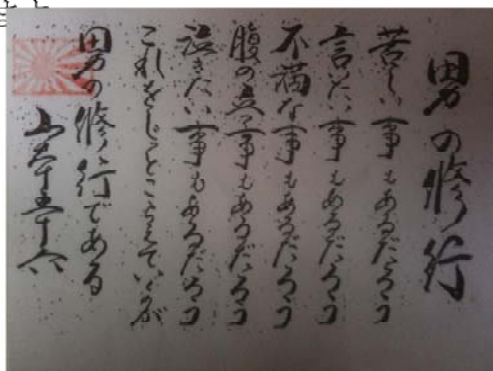 男の修行
苦しい事もあるだろう
言い度い事もあるだろう
不満な事もあるだろう
腹の立つ事もあるだろう
泣きたい事もあるだろう
これをじっとこらえていくのが
男の修行である
山本五十六